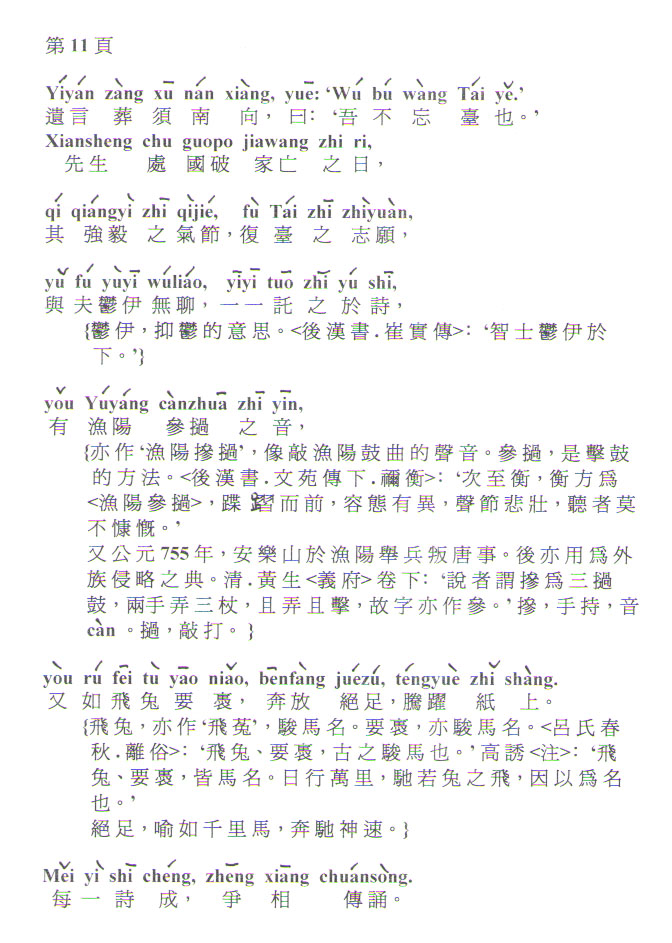 第 11 頁
Yíyán zàng xū nán xiàng, yuē: ‘Wú bú wàng Tái yě.’
遺言 葬 須 南 向，曰：‘吾 不 忘 臺 也。’
Xiansheng chu guopo jiawang zhi ri,
先生 處 國破 家亡 之 日，
qí qiángyì zhī qìjié, fù Tái zhī zhìyuàn,
其 強毅 之 氣節，復 臺 之 志願，
yǔ fú yùyī wúliáo, yīyī tuō zhī yú shī,
與 夫 鬱伊 無聊，一一 託 之 於 詩，
{鬱伊，抑鬱的意思。<後漢書．崔實傳>：‘智士鬱伊於
下。’}
yǒu Yúyáng cànzhuā zhī yīn,
有 漁陽 參撾 之 音，
{亦作‘漁陽摻撾’，像敲漁陽鼓曲的聲音。參撾，是擊鼓
的方法。<後漢書．文苑傳下．禰衡>：‘次至衡，衡方爲
<漁陽參撾>，蹀躧而前，容態有異，聲節悲壯，聽者莫
不慷慨。’
又公元 755 年，安樂山於漁陽舉兵叛唐事。後亦用爲外
族侵略之典。清．黃生<義府>卷下：‘說者謂摻爲三撾
鼓，兩手弄三杖，且弄且擊，故字亦作參。’摻，手持，音
càn。撾，敲打。}
yòu rú fēi tù yāo niǎo, bēnfàng juézú, téngyuè zhǐ shàng.
又 如 飛 兔 要 褭，奔放 絕足，騰躍 紙 上。
{飛兔，亦作‘飛菟’，駿馬名。要褭，亦駿馬名。<呂氏春
秋．離俗>：‘飛兔、要褭，古之駿馬也。’高誘<注>：‘飛
兔、要褭，皆馬名。日行萬里，馳若兔之飛，因以爲名
也。’
絕足，喻如千里馬，奔馳神速。}
Měi yì shī chéng, zhēng xiāng chuánsòng.
每 一 詩 成，爭 相 傳誦。